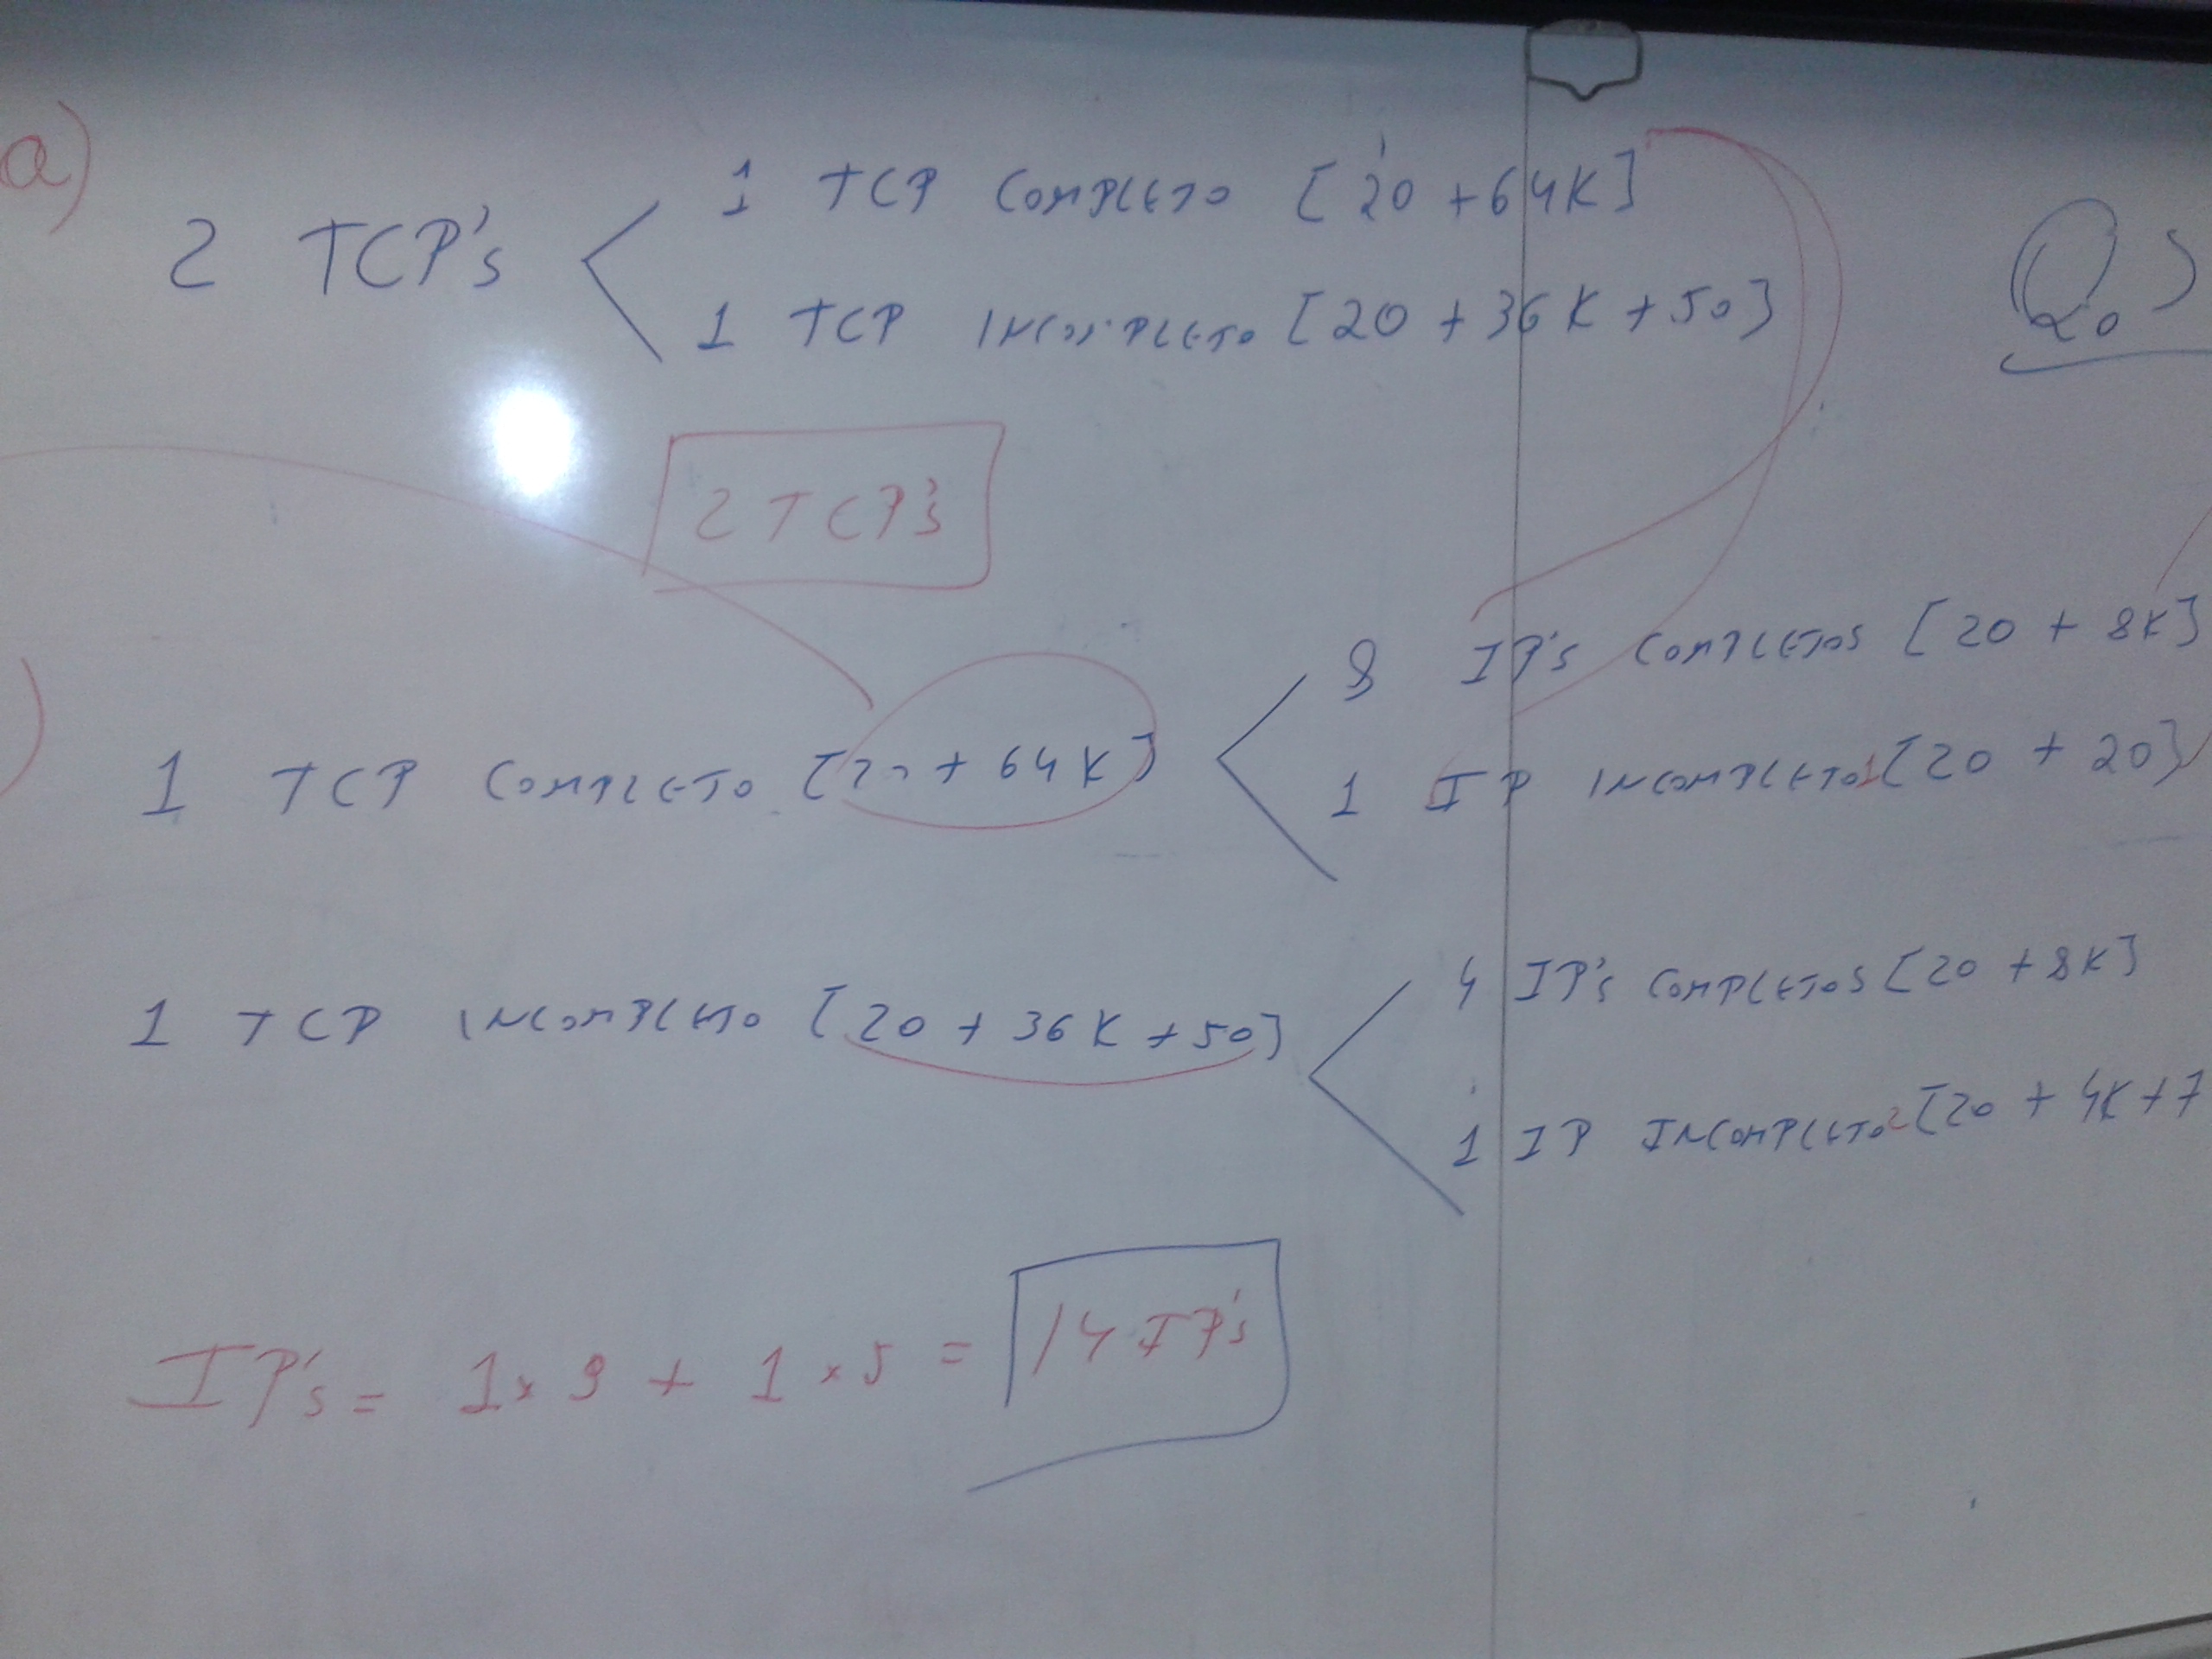 a)
2 TCP's
1 TCP COMPLETO [20 + 64K]
1 TCP INCOMPLETO [20 + 36K + 50]
2 TCP's
)
1 TCP COMPLETO [20 + 64K]
8 IP's COMPLETOS [20 + 8K]
1 IP INCOMPLETO1 [20 + 20]
1 TCP INCOMPLETO [20 + 36K + 50]
4 IP's COMPLETOS [20 + 8K]
1 IP INCOMPLETO2 [20 + 4K + 7
IP's = 1 x 9 + 1 x 5 = 14 IP's